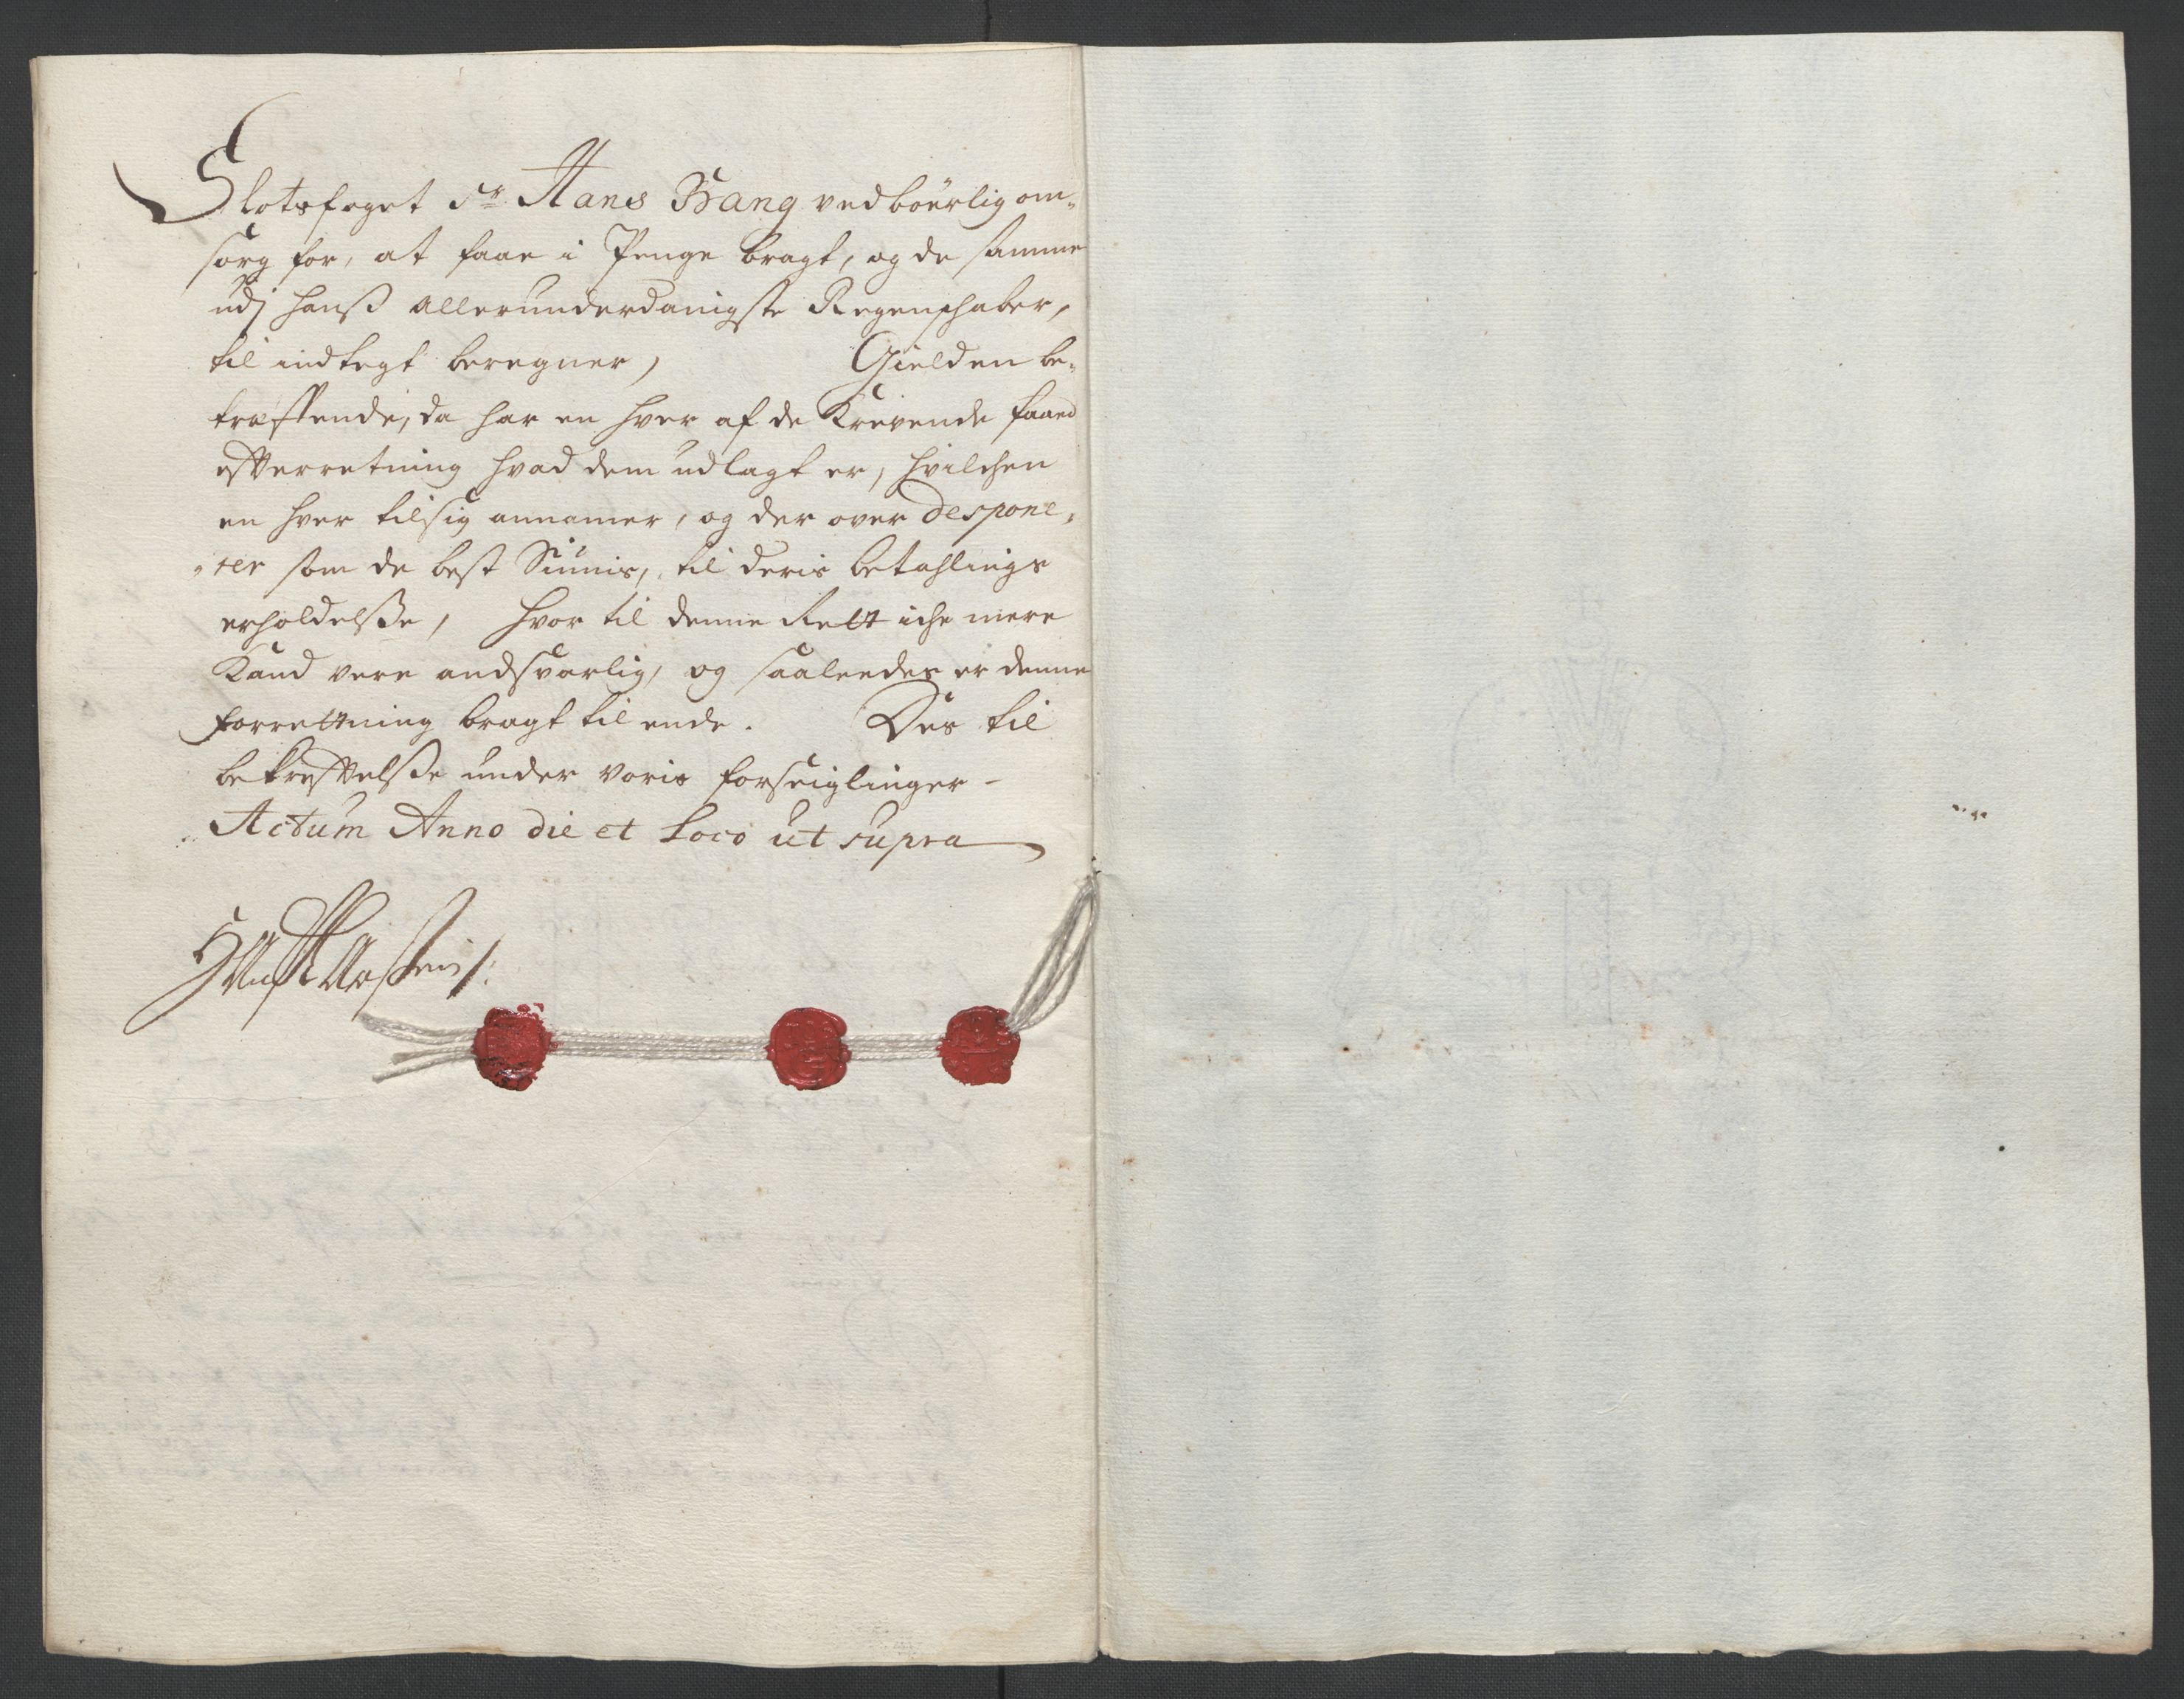 Slotsfoget Sr. Hans Bang ved böerlig om=
sorg for, at faae i Penge bragt, og de samme
udj hanß allerunderdanigste Regenschaber,
til indtegt beregner, Gielden be=
treffende, da har en hver af de Krevende faaed
efterretning hvad dem udlagt er, hvilchen
en hver til sig annamer, og der over despone=
=rer som de best Siunis, til deris betahlings
erholdelße, hvor til denne Rett iche mere
Kand vere andsvarlig, og saaleedes er denne
forrettning bragt til ende. Des til
bekreftelße under voris forseiglinger -
Actum Anno die et Loco ut supra